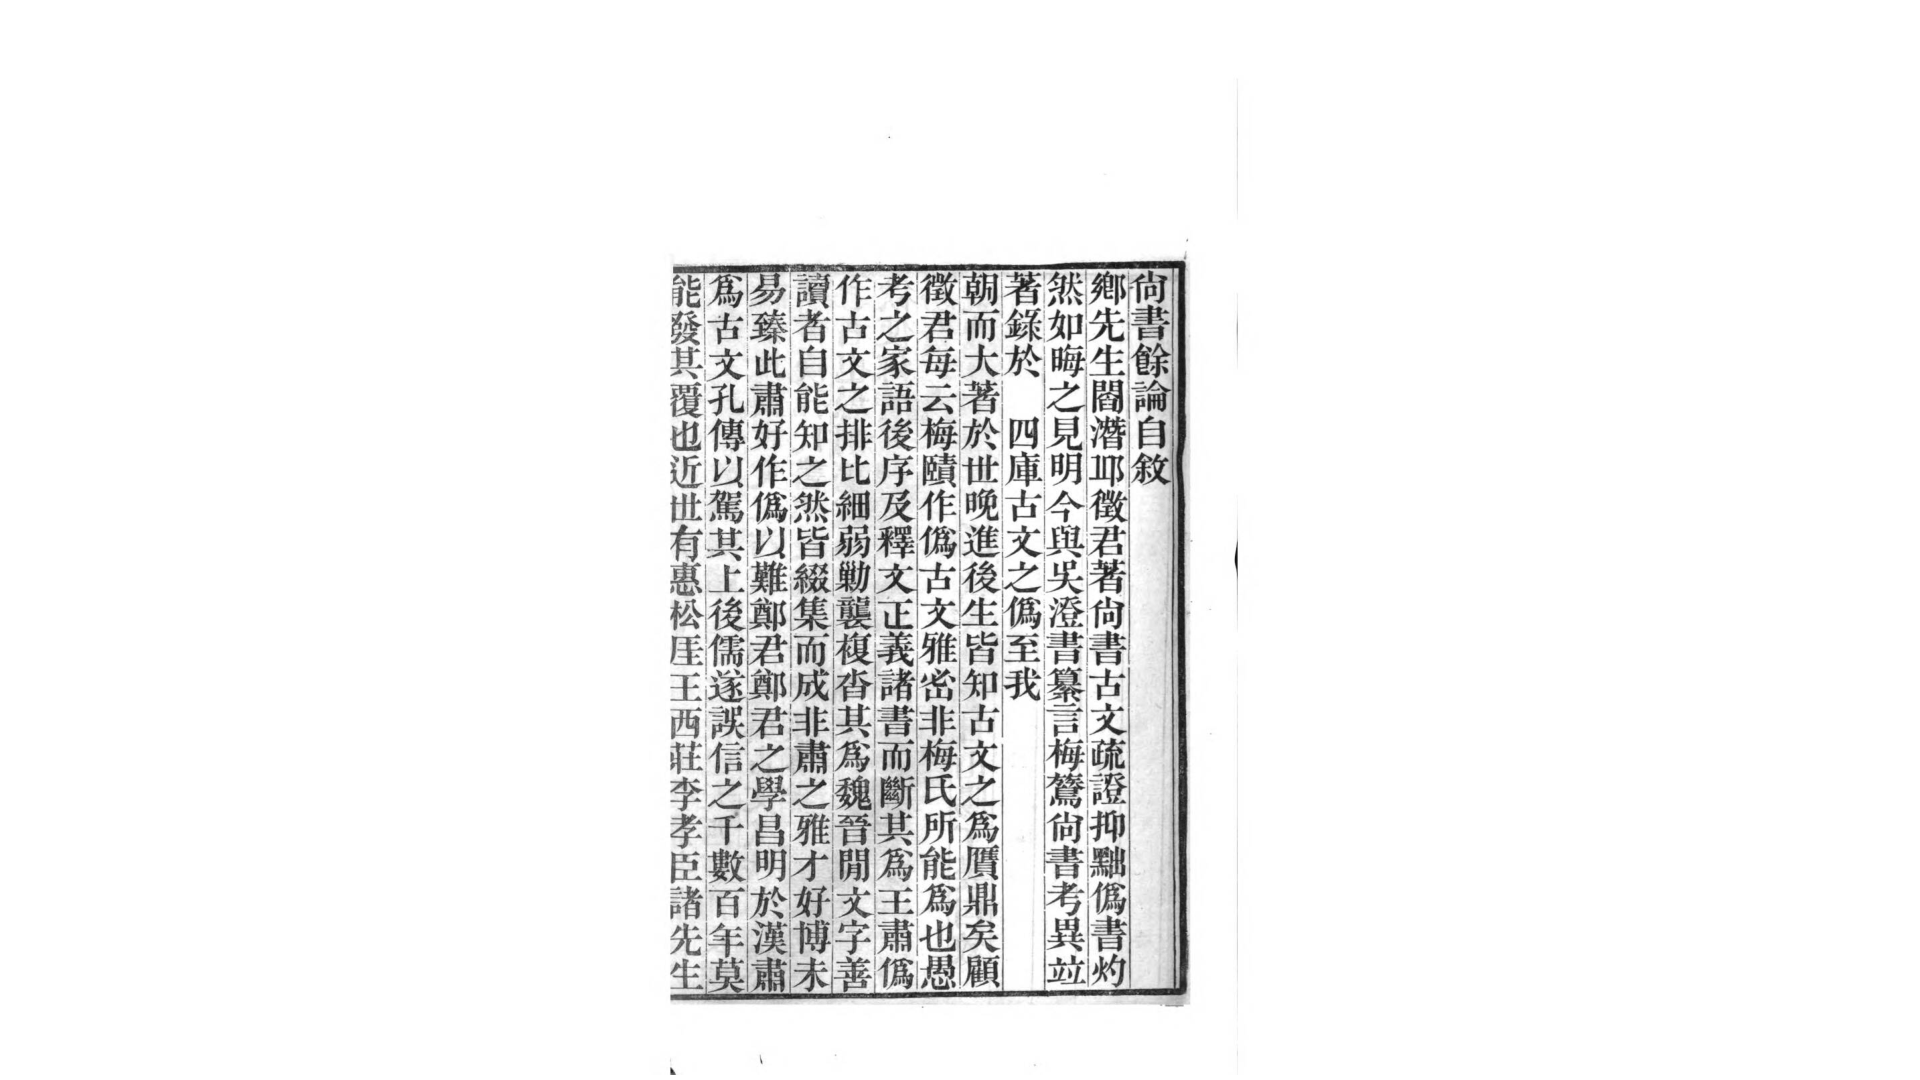 尙書餘論自敘
鄕先生閻潛邱徵君著尙書古文疏證抑黜僞書灼
然如晦之見明今與吳澄書纂言梅鷟尙書考異竝
著錄於　四庫古文之僞至我
朝而大著於世晚進後生皆知古文之爲贋鼎矣顧
徵君每云梅賾作僞古文雅密非梅氏所能爲也愚
考之家語後序及釋文正義諸書而斷其爲王肅僞
作古文之排比細弱勦襲複沓其爲魏晉閒文字善
讀者自能知之然皆綴集而成非肅之雅才好博未
易臻此肅好作僞以難鄭君鄭君之學昌明於漢肅
爲古文孔傳以駕其上後儒遂誤信之千數百年莫
能發其覆也近世有惠松厓王西莊李孝臣諸先生